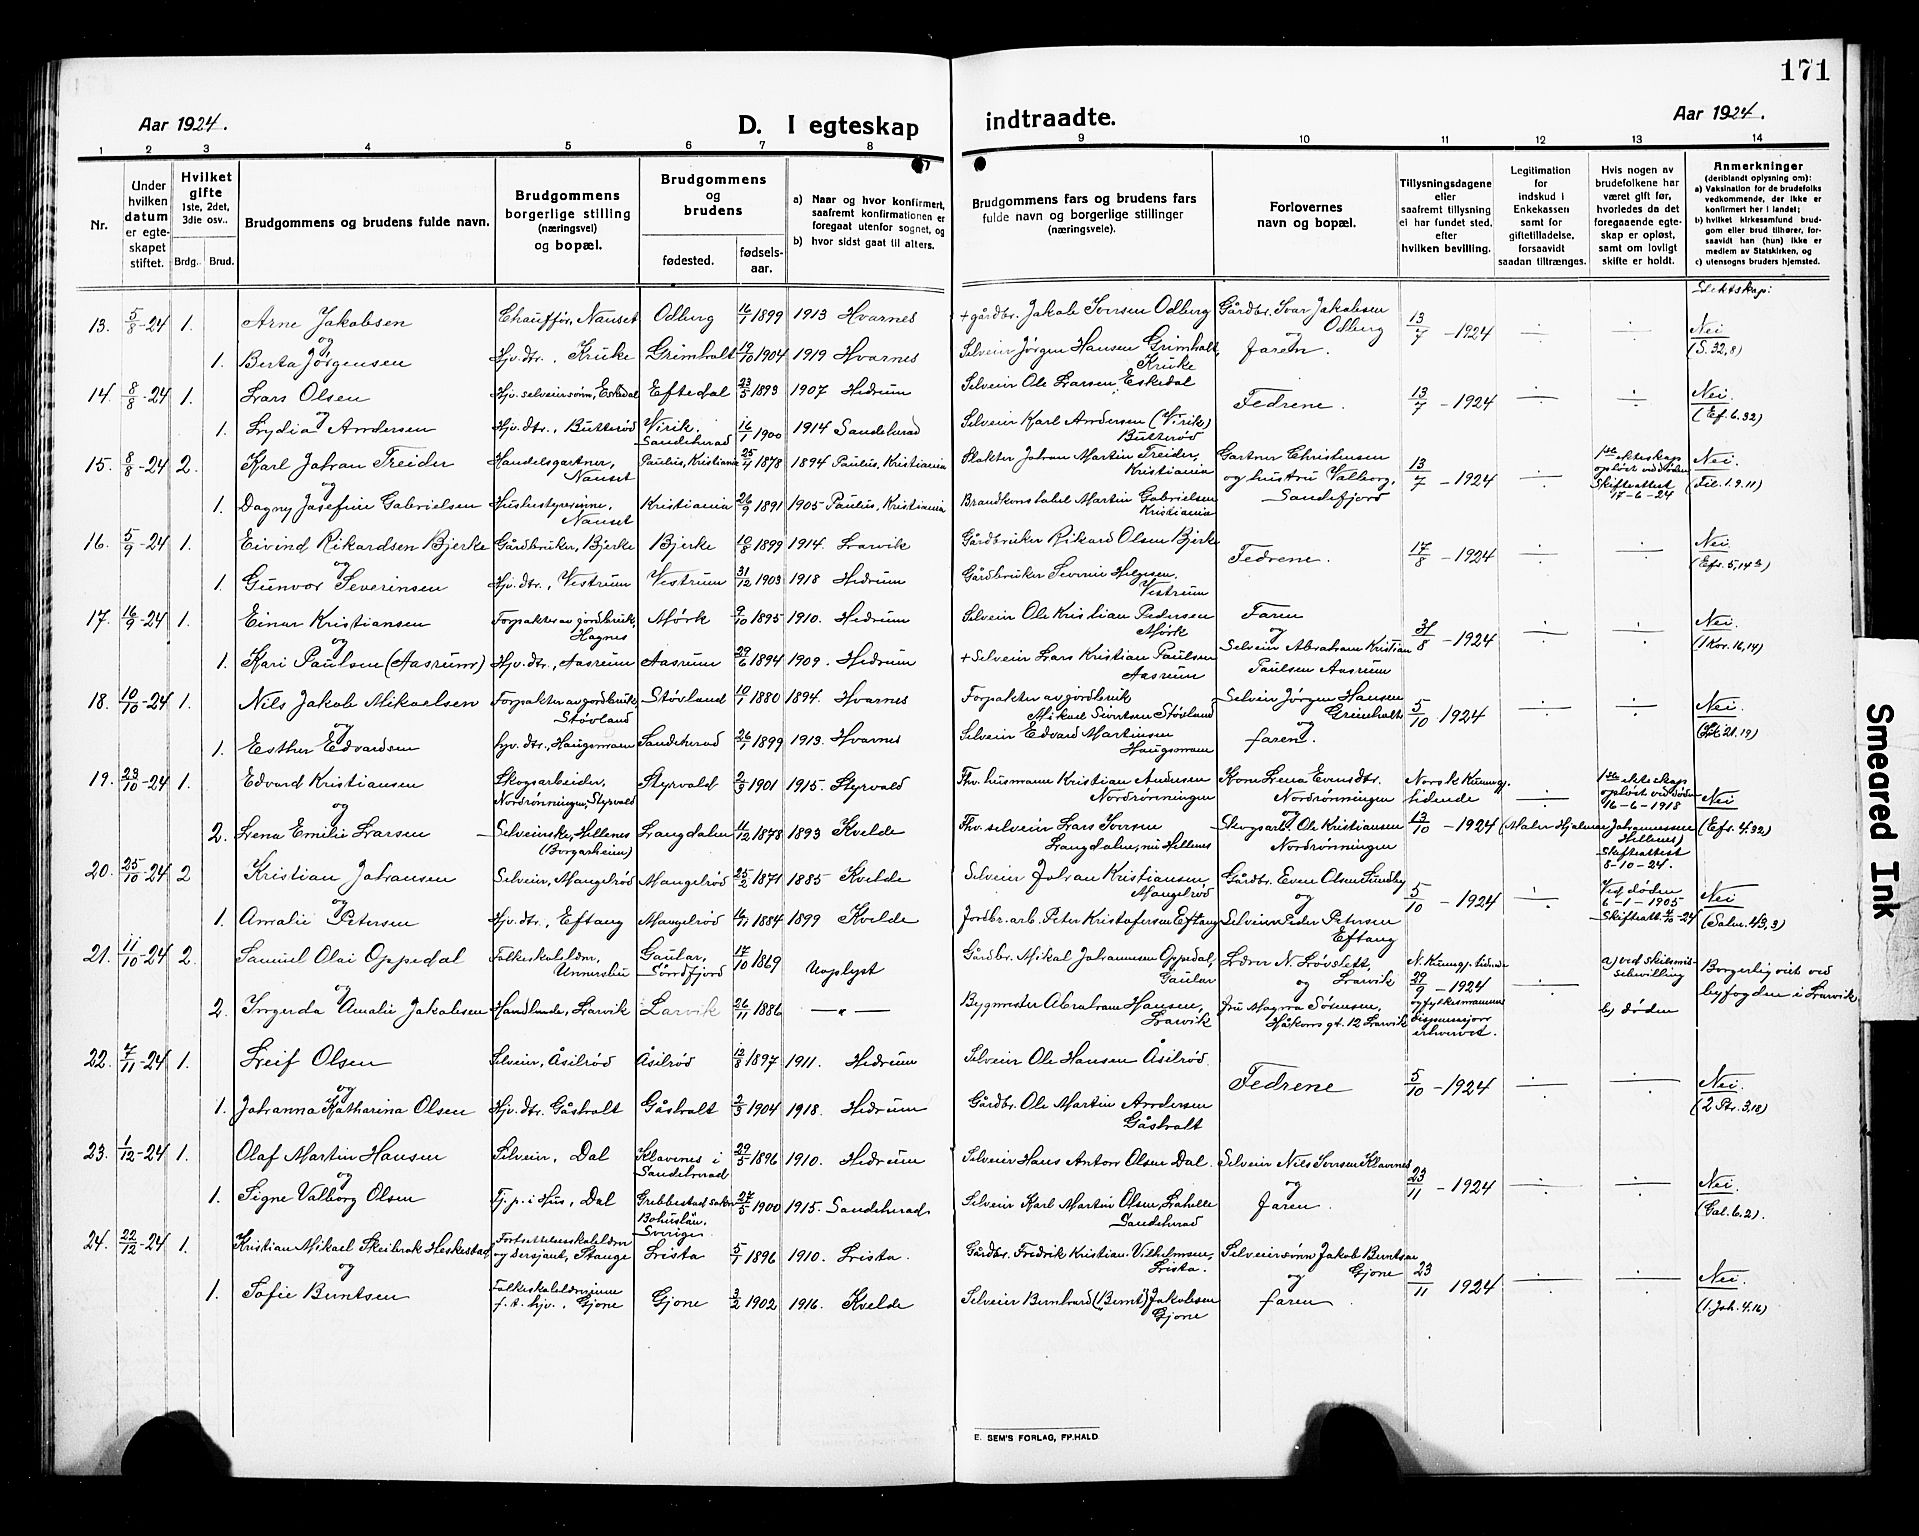 171
Aar 1924.
D. I egteskap indtraadte.
Aar 1924.
1 2 3 4 5 6 7 8 9 10 11 12 13 14
Nr.
Under hvilken datum er egteskapet stiftet.
Hvilket gifte 1ste, 2det, 3die osv..
Brdg. Brud.
Brudgommens og brudens fulde navn.
Brudgommens borgerlige stilling (næringsvei) og bopæl.
Brudgommens og brudens
fødested. fødselsaar.
a) Naar og hvor konfirmert, saafremt konfirmationen er foregaat utenfor sognet, og
b) hvor sidst gaat til alters.
Brudgommens fars og brudens fars fulde navn og borgerlige stillinger (næringsveie).
Forlovernes navn og bopæl.
Tillysningsdagene eller saafremt tillysning ei har fundet sted. efter hvilken bevilling.
Legitimation for indskud i Enkekassen samt for giftetilladelse, forsaavidt saadan tiltrænges.
Hvis nogen av brudefolkene har været gift før, hvorledes da det foregaaende egteskap er opløst, samt om lovligt skifte er holdt.
Anmerkninger (deriblandt oplysning om): a) Vaksination for de brudefolks vedkommende, der ikke er konfirmert her i landet; b) hvilket kirkesamfund brudgom eller brud tilhører, forsaavidt han (hun) ikke er medlem av Statskirken, og c) utensogns bruders hjemsted.
Slektskap:
13. 5/8-24 1. Arne Jakobsen Chauffør, Nauset Odberg 16/1 1899 1913 Hvarnes + gårdbr. Jakob Iversen Odberg Gårdbr. Ivar Jakobsen Odberg 13/7 - 1924 Nei (S. 32,8)
og
1. Berta Jørgensen Hjv. dtr., Kruke Grimholt 19/10 1904 1919 Hvarnes Selveier Jørgen Hansen Grimholt, Kruke og faren.
14. 8/8-24 1. Lars Olsen Hjv. selveiersønn, Eskedal Eftedal 23/5 1893 1907 Hedrum Selveier Ole Larsen Eskedal Fedrene. 13/7 - 1924 Nei (Ef. 6.32)
og
1. Lydia Andersen Hjv. dtr., Butterød Virik, Sandeherad 16/1 1900 1914 Sandeherad Selveier Karl Andersen (Virik) Butterød
15. 8/8-24 2. Karl Johan Treider Handelsgartner, Nauset Paulus, Kristiania 25/4 1878 1894 Paulus, Kristiania Slakter Johan Martin Treider, Kristiania Gartner Christensen og hustru Valborg, Sandefjord 13/7 - 1924 1ste ekteskap opløst ved døden Skifteattest 17-6-24 Nei. (Fil. 1.9.11)
og
1. Dagny Josefine Gabrielsen Husbestyrerinne, Nauset Kristiania 26/9 1891 1905 Paulus, Kristiania Brandkonstabel Martin Gabrielsen Kristiania
16. 5/9-24 1. Eivind Rikardsen Bjerke Gårdbruker, Bjerke Bjerke 10/8 1899 1914. Larvik Gårdbruker Rikard Olsen Bjerke Fedrene. 17/8 - 1924 Nei. (Efs. 5,14)
og
1. Gunvor Severinsen Hjv. dtr., Vestrum Vestrum 31/12 1903 1918 Hedrum Gårdbruker Severin Helgesen, Vestrum
17. 16/9-24 1. Einar Kristiansen Forpakter av jordbruk, Hagnes Mørk 9/10 1895 1910. Hedrum Selveier Ole Kristian Pedersen Mørk Faren og 31/8 - 1924 Nei. (1 Kor. 16,14)
og
1. Kari Paulsen (Aasrum) Hjv. dtr., Aasrum Aasrum 29/6 1894 1909. Hedrum + Selveier Lars Kristian Paulsen Aasrum Selveier Abraham Kristian Paulsen Aasrum
18. 10/10-24 1. Nils Jakob Mikaelsen Forpakter av jordbruk, Støvland Støvland 10/1 1880 1894. Hvarnes Forpakter av jordbruk Mikael Sivertsen Støvland Selveier Jørgen Hansen Grimholt 5/10 1924 Nei. 21.19)
og
1. Esther Edvardsen hjv. dtr., Haugsmoen Sandeherad 26/1 1899 1913. Hvarnes Selveier Edvard Martinsen Haugsmoen og faren.
19. 23/10-24 1. Edvard Kristiansen Skogsarbeider, Nordrønningen, Styrvold Styrvold 2/9 1901 1915. Styrvold Fhv. husmann Kristian Andersen Nordrønningen Kone Lena Evensdtr. Nordrønningen Norsk Kunngj. tidende 1ste ekteskap opløst ved døden 16-6-1918 Nei
og
2. Lena Emilie Larsen Selveierske, Hillenes (Borgarheim) Langdalen 11/12 1878 1893 Kvelde Fhv. selveier Lars Iversen Langdalen, nu Hillenes og Skogsarb. Ole Kristiansen Nordrønningen 13/10 - 1924 (Maler Hjalmar Johannessen Hillenes) Skifteattest 8-10-24. (Efs. 4.32)
20. 25/10-24 2 Kristian Johansen Selveier, Mangelrød Mangelrød 25/2 1871 1885 Kvelde Selveier Johan Kristiansen, Mangelrød Gårdbr. Even Olsen Sundby 5/10 - 1924 Ved døden 6-1-1905 Skifteatt. -24 Nei (Salm. 43,3)
og
1. Amalie Petersen Hjv. dtr., Eftang Mangelrød 16/11 1884 1899 Kvelde Jordbr. arb. Peter Kristofersen Eftang og Selveier Peder Petersen Eftang
21. 11/10-24 2. Samuel Olai Oppedal Folkeskolelærer, Unnersbu Gaular, Søndfjord 17/10 1869 Uoplyst Gårdbr. Mikal Johannesen Oppedal, Gaular Lærer N. Løvslett, Larvik N. Kunngj. tidende 29/9 - 1924 a) ved skilsmissebevilling Borgerlig viet ved byfogden i Larvik.
og
2. Ingerda Amalie Jakobsen Handlende, Larvik Larvik 26/11 1886 — " — Bygmester Abraham Hansen, Larvik og Fru Magna Sørensen, Håkons gt. 12 Larvik og fylkesmannens dispensasjon erhvervet. b) døden
22. 7/11-24 1. Leif Olsen Selveier, Åsilrød Åsilrød 12/8 1897 1911. Hedrum Selveier Ole Hansen Åsilrød. Fedrene 5/10 - 1924 Nei. (2 Ptr. 3,18)
og
1. Johanna Katharina Olsen Hjv. dtr. Gåsholt Gåsholt 2/3 1904 1918. Hedrum Gårdbr. Ole Martin Andersen Gåsholt
23. 1/12-24 1. Olaf Martin Hansen Selveier, Dal Klavenes i Sandeherad 29/5 1896 1910. Hedrum Selveier Hans Anton Olsen Dal. Selveier Nils Iversen Klavnes 23/11 - 1924 Nei. (Gal. 6.2)
og
1. Signe Valborg Olsen Tj. p. i Hus, Dal Grebbestad sokn Bohuslän. Sverige 27/5 1900 1915. Sandeherad Selveier Karl Martin Olsen, Lahelle Sandeherad og Faren.
24. 22/12-24 1. Kristian Mikael Skeibrok Heskestad, Fortsettelsesskolelærer og sersjant, Stange Lista 5/1 1896 1910. Lista. Gårdbr. Fredrik Kristian Vilhelmsen, Lista. Selveiersønn Jakob Berntsen Gjone 23/11 1924 Nei. (1. Joh. 4.16)
og
1. Sofie Berntsen Folkeskolelærerinne f.t. hjv., Gjone Gjone 3/2 1902 1916. Kvelde Selveier Bernhard (Bernt) Jakobsen Gjone og faren
E. SEM'S FORLAG, FR.HALD
Smeared Ink